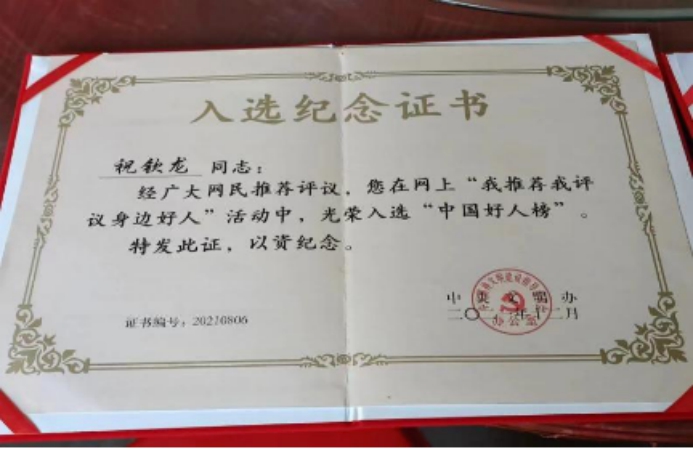 入选纪念证书
祝钦龙 同志：
经广大网民推荐评议，您在网上“我推荐我评
议身边好人”活动中，光荣入选“中国好人榜”。
特发此证，以资纪念。
中央文明办
二〇二 年十二月
办公室
证书编号：20210806